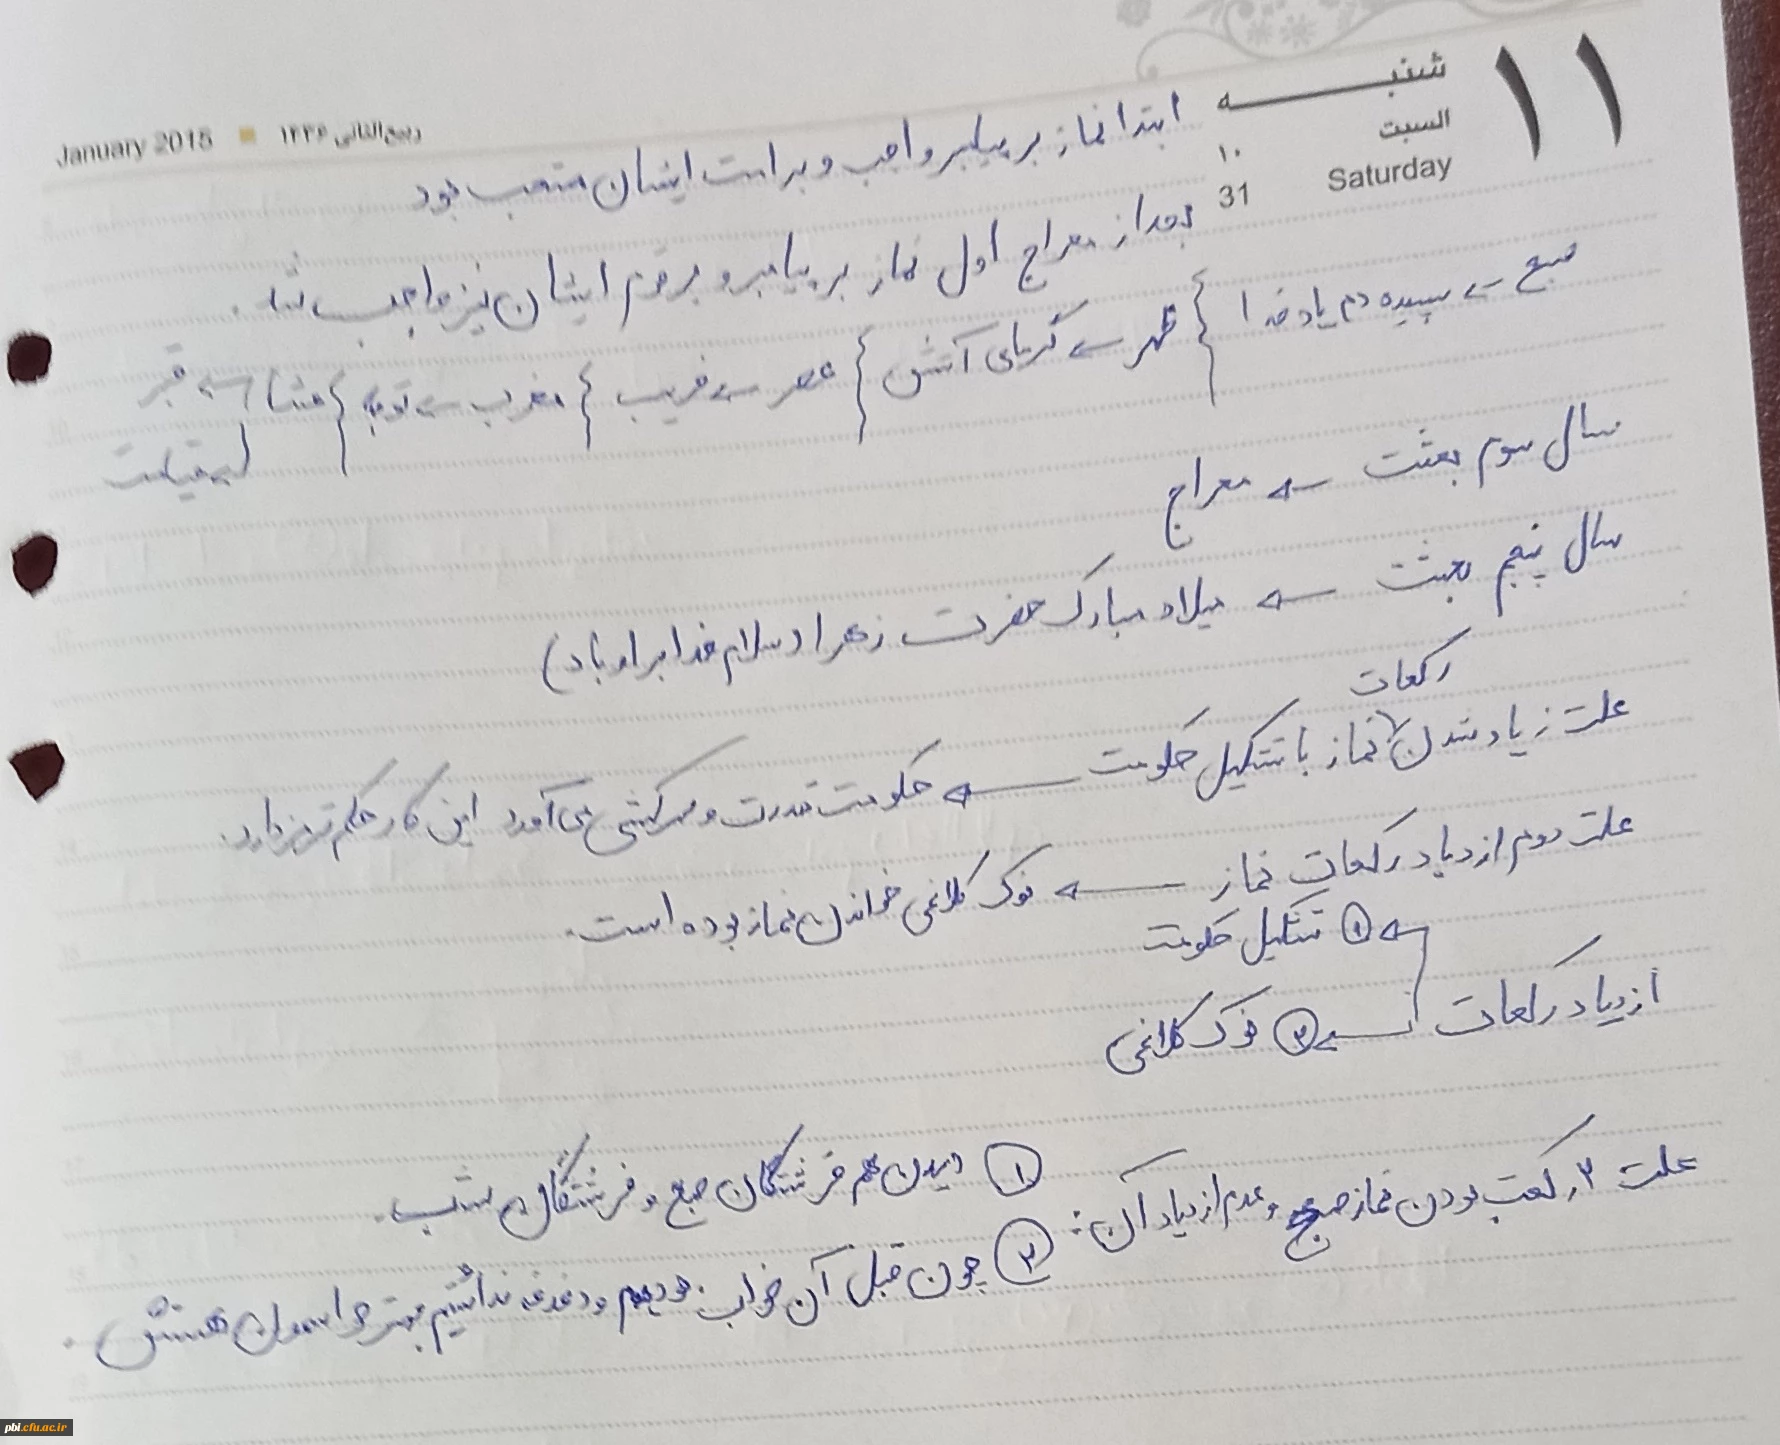 ۱۱ شنبه
السبت ۱۰
Saturday 31
ربیع‌الثانی ۱۴۳۶ ■ January 2015
ابتدا نماز بر پیامبر واجب و بر امت ایشان مستحب بود
بعد از معراج اول نماز بر پیامبر و بر قوم ایشان نیز واجب شد.
صبح ← سپیده دم یاد خدا } ظهر ← گرمای آتش } عصر ← فریب } مغرب ← توبه } عشا ← قبر
← قیامت
سال سوم بعثت ← معراج
سال پنجم بعثت ← میلاد مبارک حضرت زهرا (سلام خدا بر او باد)
رکعات
علت زیاد شدن نماز با تشکیل حکومت ← حکومت قدرت و سرکشی می آورد این کار حکم ترمز دارد.
علت دوم ازدیاد رکعات نماز ← نوک کلاغی خواندن نماز بوده است.
← ① تشکیل حکومت
ازدیاد رکعات ← ② نوک کلاغی
علت ۲ رکعت بودن نماز صبح و عدم ازدیاد آن: ① دیدن هم فرشتگان صبح و فرشتگان شب.
② چون قبل آن خواب بودیم و دغدغه نداشتیم بهتر حواسمون هستش.
pbi.cfu.ac.ir